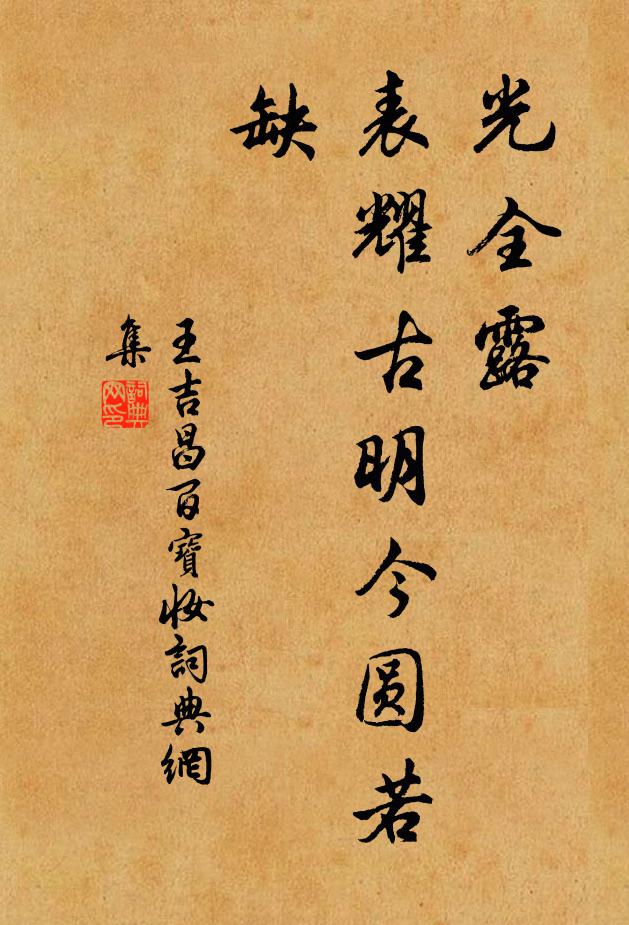 光全露
表耀古明今圆若
缺
王吉昌百寶妝詞典網
集
詞典
网印